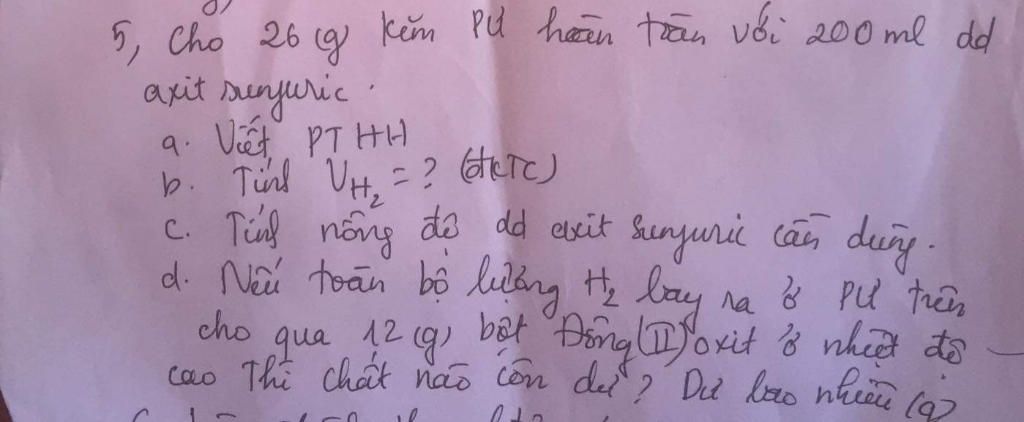 5, Cho 26 (g) kẽm PƯ hoàn toàn với 200 ml dd
axit sunfuric.
a. Viết PTHH
b. Tính VH₂ = ? (đKTC)
c. Tính nồng độ dd axit sunfuric cần dùng.
d. Nếu toàn bộ lượng H₂ bay ra ở PƯ trên
cho qua 12 (g) bột Đồng (II) oxit ở nhiệt độ
cao Thì chất nào còn dư? Dư bao nhiêu (g)